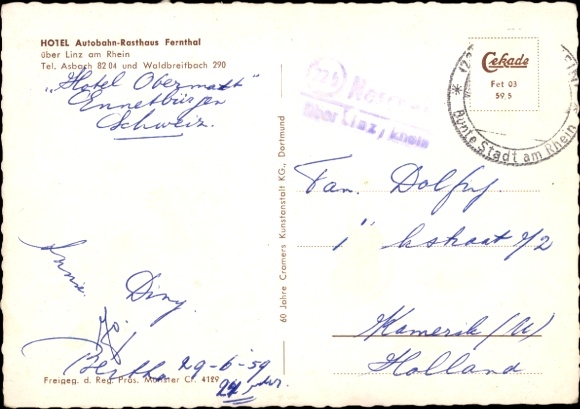 HOTEL Autobahn-Rasthaus Fernthal
über Linz am Rhein
Tel. Asbach 82 04 und Waldbreitbach 290
"Hotel Obermatt"
Ennetbürgen
Schweiz.
Cekade
Fet 03
59,5
über Linz/Rhein
Bunte Stadt am Rhein
Fam.
1e
Kamerik (U)
Holland
60 Jahre Cramers Kunstanstalt KG., Dortmund
Diny
Bertha 29-6-59
Freigeg. d. Reg. Präs. Münster Cf. 4129